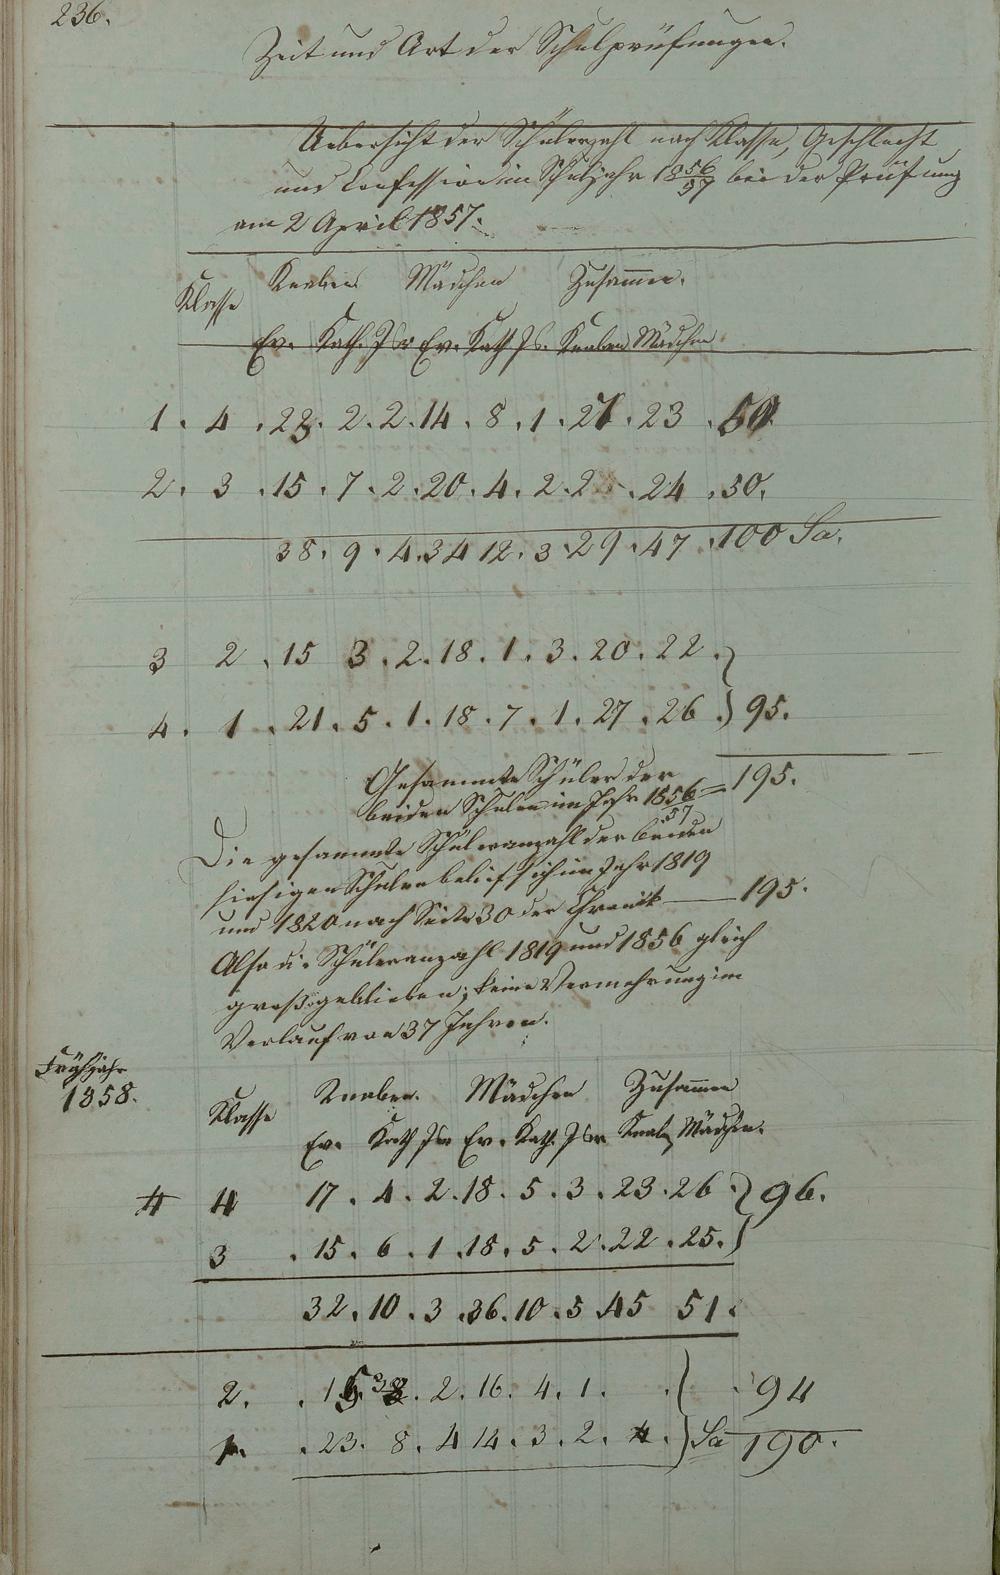 236.
Zeit und Art der Schulprüfungen.
Uebersicht der Schülerzahl nach Klasse, Geschlecht
und Confession im Schuljahr 1856/57 bei der Prüfung
am 2 April 1857.
Klasse Knaben Mädchen Zusammen.
Ev. Kath. Isr Ev. Kath Is. Knaben Mädchen
1. 4 . 23. 2. 2. 14. 8. 1. 27. 23 . 50.
2. 3 . 15. 7. 2. 20. 4. 2. 2 . 24 . 50.
38. 9. 4. 34 12. 3. 29. 47. 100 Sa.
3 2 . 15 3. 2. 18. 1. 3. 20. 22.
4. 1 . 21. 5. 1. 18. 7. 1. 27. 26. } 95.
Gesammte Schüler der
beiden Schulen im Jahr 1856/57 = 195.
Die gesammte Schüleranzahl der beiden
hiesigen Schulen belief sich im Jahr 1819
und 1820 nach Seite 30 der Chronik — 195.
Also die Schüleranzahl 1819 und 1856 gleich
groß geblieben; keine Vermehrung im
Verlauf von 37 Jahren.
Frühjahr
1858.
Klasse Knaben. Mädchen Zusammen
Ev. Kath Isr Ev. Kath. Isr Knab. Mädchen.
4 4 17. 4. 2. 18. 5. 3. 23. 26 } 96.
3 . 15. 6. 1. 18. 5. 2. 22. 25.
32. 10. 3. 36. 10. 5 45 51.
2. . 2. 16. 4. 1. . 94
1. . 23. 8. 4 14. 3. 2. 4. } Sa 190.